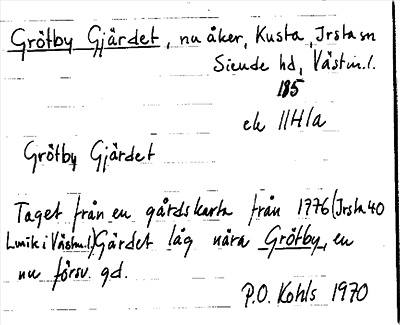 Grötby Gjärdet, nu åker, Kusta, Irsta sn
Siende hd, Västm.l.
185
ek 11H1a
Grötby Gjärdet
Taget från en gårdskarta från 1776 (Irsta 40
Lmk i Västm.l.) Gärdet låg nära Grötby, en
nu försv. gd.
P.O. Kohls 1970